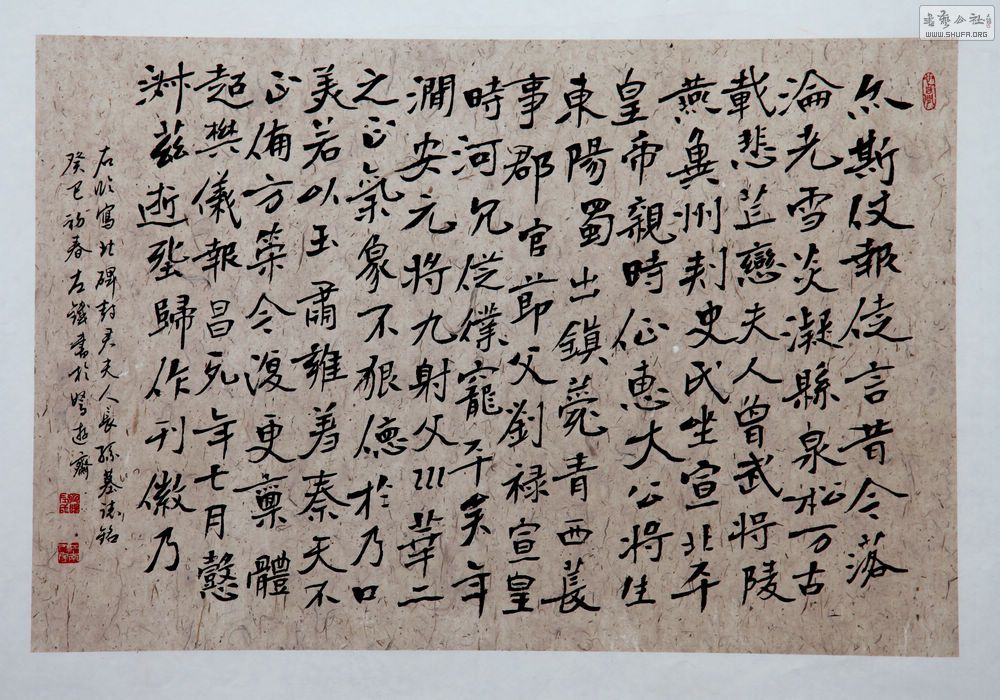 斯仗報徒言昔令落
淪光雪炎凝縣泉松万古
載悲芷戀夫人曾武將陵
燕冀州刺史氏坐宣北平
皇帝親時征惠大公將生
東陽蜀出鎮薨青西萇
事郡官節父劉禄宣皇
時河兄從僕寵于矣年
澗安元將九射父川華二
之正氣象不狠德於乃口
美若以玉肅雍着秦天不
正備方策令復更稟體
超樊儀報昌死年七月懿
淋茲逝墜歸作刊徽乃
右臨寫北碑封君夫人長孫墓誌銘
癸巳初春左鐵書於雙遊齋
書藝公社
WWW.SHUFA.ORG